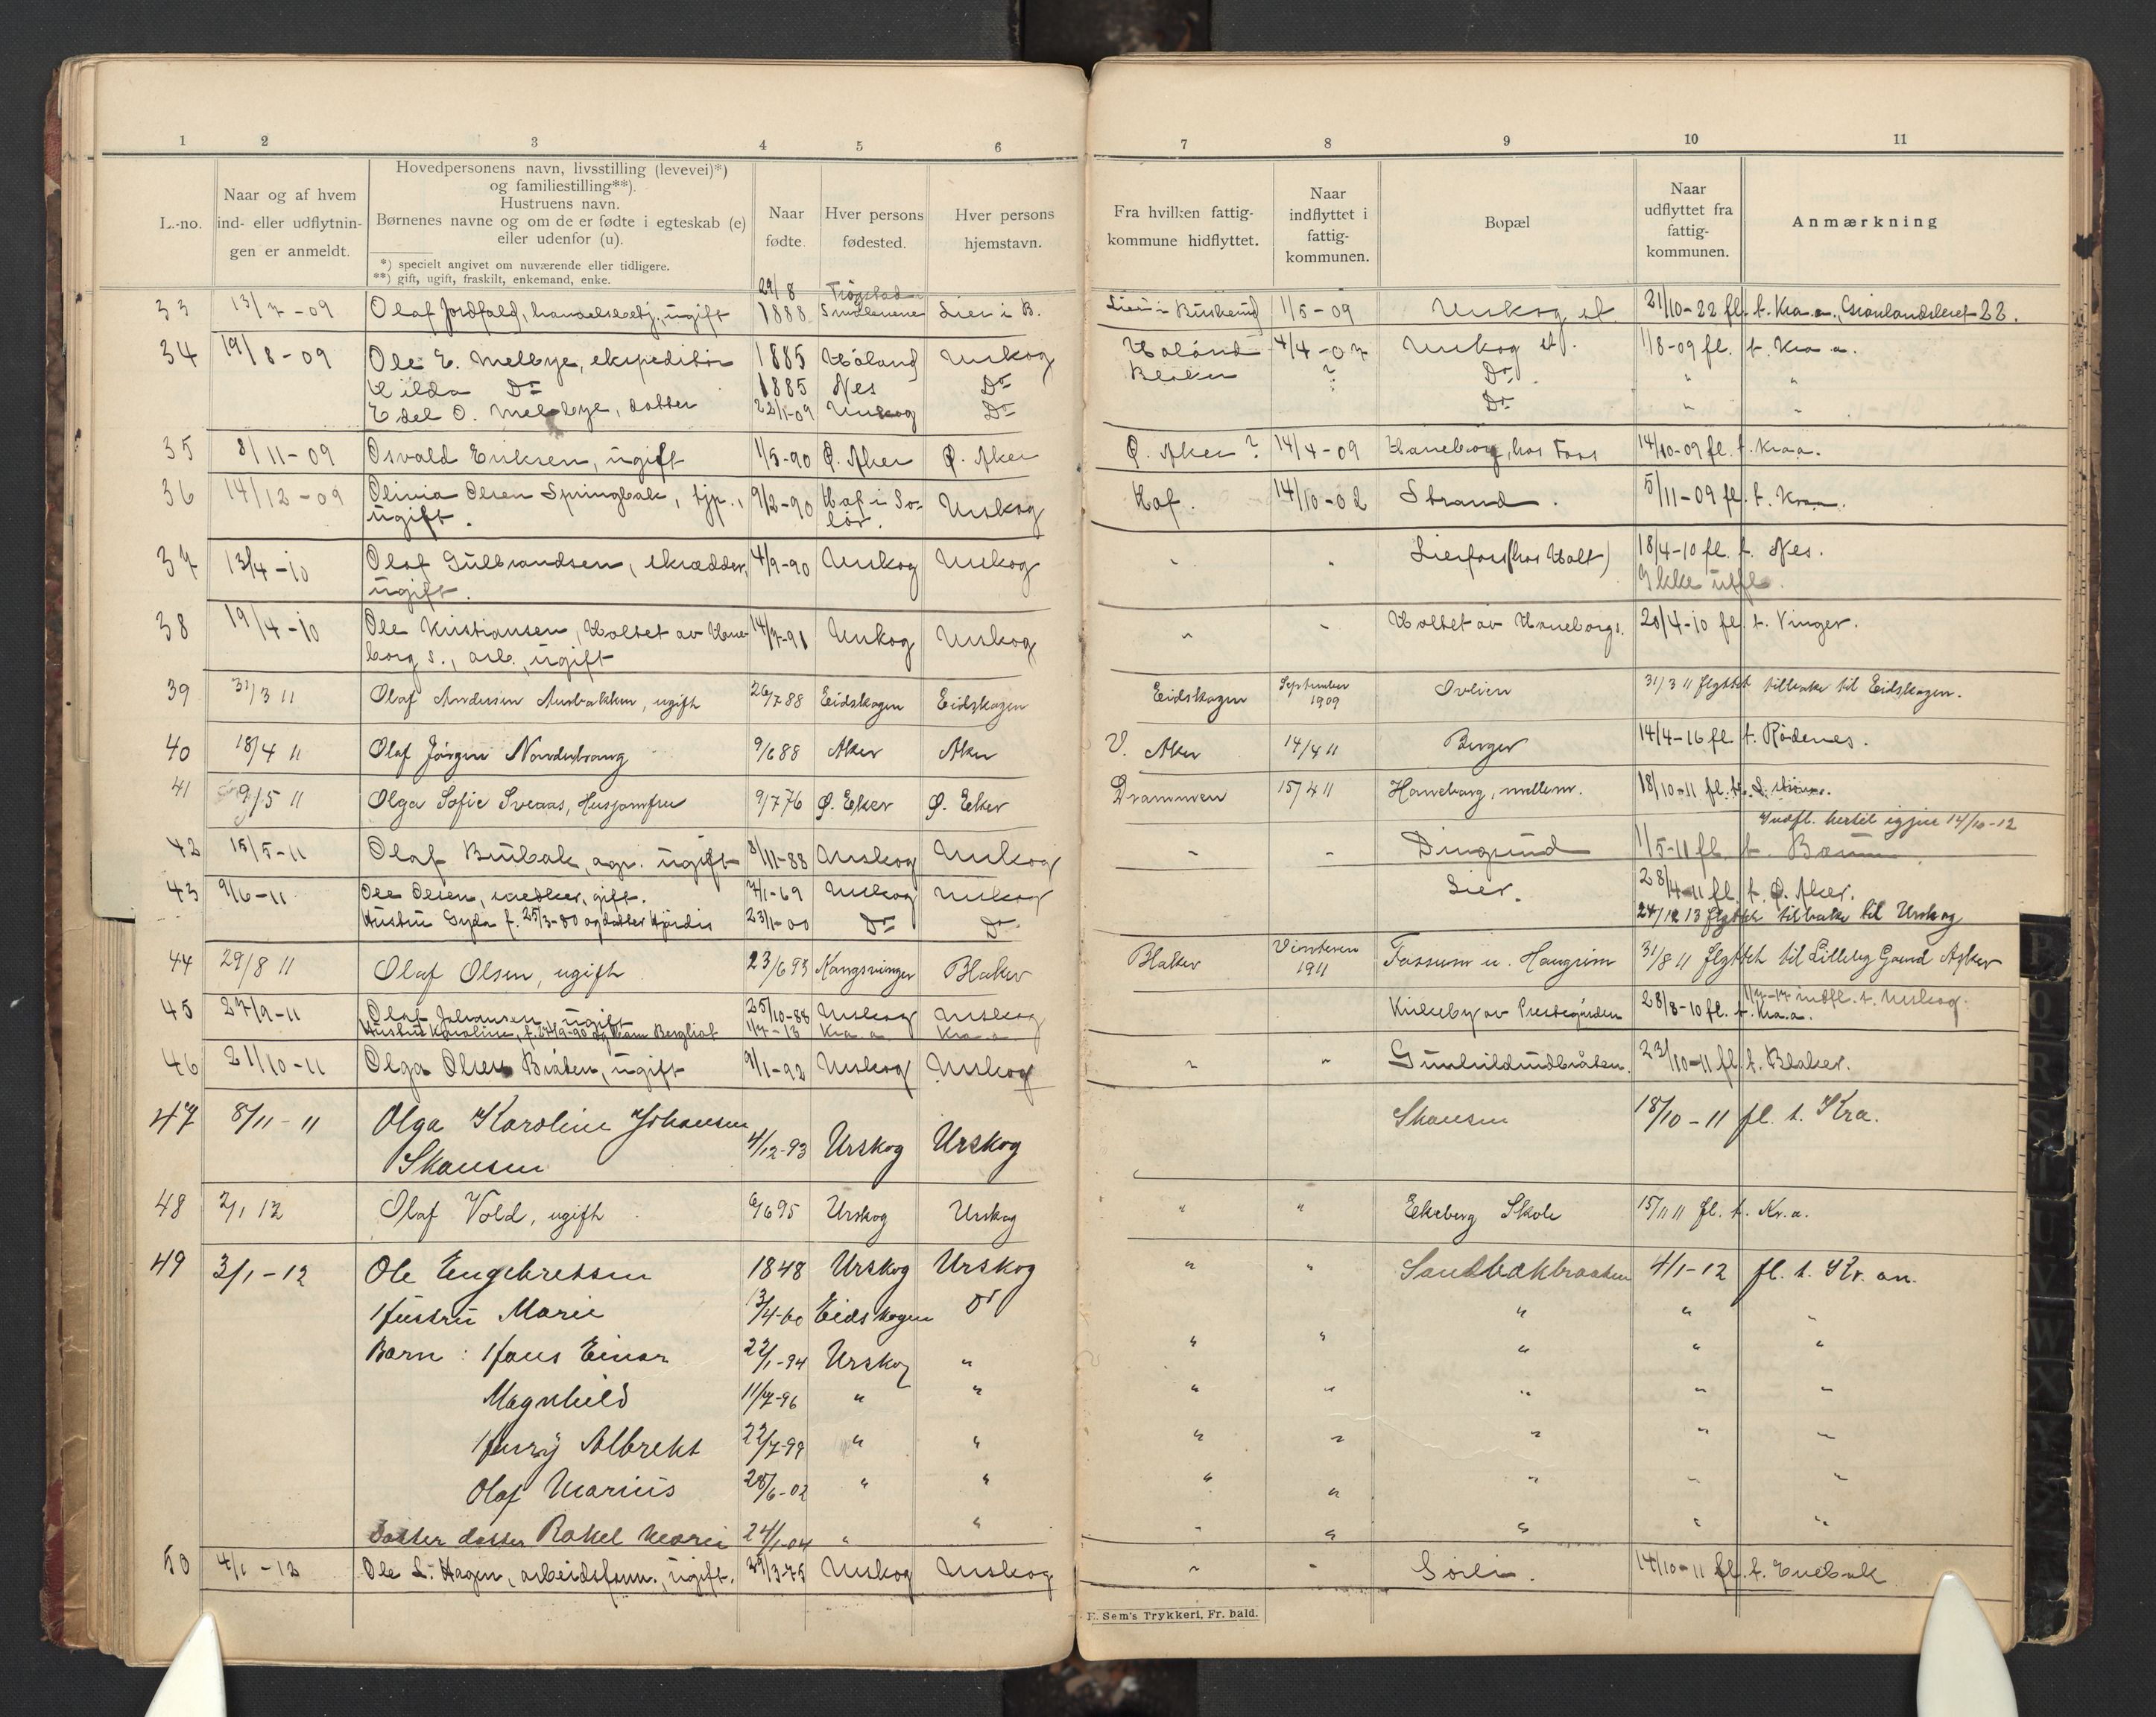 1 2 3 4 5 6 7 8 9 10 11
L.-no.
Naar og af hvem
ind- eller udflytnin-
gen er anmeldt.
Hovedpersonens navn, livsstilling (levevei)*)
og familiestilling**).
Hustruens navn.
Børnenes navne og om de er fødte i egteskab (e)
eller udenfor (u).
*) specielt angivet om nuværende eller tidligere.
**) gift, ugift, fraskilt, enkemand, enke.
Naar
fødte.
Hver persons
fødested.
Hver persons
hjemstavn.
Fra hvilken fattig-
kommune hidflyttet.
Naar
indflyttet i
fattig-
kommunen.
Bopæl
Naar
udflyttet fra
fattig-
kommunen.
Anmærkning
29/8 Trøgstad
33 13/7-09 Olaf Jordfald, handelsbetj., ugift 1888 Smaalenene Lier i B. Lier i Buskerud 1/5-09 Urskog st. 21/10-22 fl. t. Kra.a., Grønlandsleret 22.
34 19/8-09 Ole E. Melbye, ekspeditør 1885 Høland Urskog Høland 4/4-07 Urskog st. 1/8-09 fl. t. Kra a.
Hilda Do 1885 Nes Do Blaker ? Do " "
Edel O. Melbye, datter 22/1-09 Urskog Do Do " "
35 8/11-09 Osvald Eriksen, ugift 1/5-90 Ø. Aker Ø. Aker Ø. Aker ? 14/4-09 Haneborg, hos Foss 14/10-09 fl. t. Kra a.
36 14/12-09 Olivia Olsen Springbak, tjp., 9/2-90 Hof i So- Urskog Hof. 14/10-02 Strand. 5/11-09 fl. t. Kra a.
ugift. lør.
37 13/4-10 Olaf Gulbrandsen, skrædder, 4/9-90 Urskog Urskog " " Lierfoss (hos Holt) 18/4-10 fl. t. Nes.
ugift. Ikke utfl.
38 19/4-10 Ole Kristiansen, Holtet av Hane- 14/7-91 Urskog Urskog " " Holtet av Haneborg s. 20/4-10 fl. t. Vinger.
borg s., arb., ugift
39 31/3 11 Olaf Andersen Aurbakken, ugift 26/7 88 Eidskogen Eidskogen Eidskogen September 1909 Ovlien 31/3 11 flyttet tilbake til Eidskogen.
40 18/4 11 Olaf Jørgen Nordstrang 9/6 88 Aker Aker V. Aker 14/4 11 Berger 14/4-16 fl. t. Rødenes.
41 9/5 11 Olga Sofie Sveaas, Husjomfru 9/7 76 Ø. Eker Ø. Eker Drammen 15/4 11 Haneborg, mellem. 18/10-11 fl. t.
Indfl. hertil igjen 14/10-12
42 15/5-11 Olaf Brubak, agr. ugift 8/11-88 Urskog Urskog " " Dingrud 1/5-11 fl. t. Bærum
43 9/6-11 Ole Olsen, snedker, gift. 7/1-69 Urskog Urskog Lier. 28/4-11 fl. t. Ø. Aker.
Hustru Gyda f. 25/3-80 og datter Hjørdis 23/1-00 Do Do 24/12 13 flyttet tilbake til Urskog
44 29/8 11 Olaf Olsen, ugift 23/6 93 Kongsvinger Blaker Blaker Vinteren 1911 Fossum u. Haugrim 31/8 11 flyttet til Lilleby Gaard Asker
45 27/9-11 Olaf Johansen, ugift 25/10-88 Urskog Urskog Kirkeby av Prestegården 28/8-10 fl. t. Kra.a. 1/7-17 indfl. t. Urskog.
Hustru Karoline, f. 27/9-90 og barn Bergliot 1/7-13 Kra. a. Kra. a
46 21/10-11 Olga Olsen Bråten, ugift 9/1-92 Urskog Urskog " " Gunhildrudbråten. 23/10-11 fl. t. Blaker.
47 8/11-11 Olga Karoline Johansen 4/12-93 Urskog Urskog Skansen 18/10-11 fl. t. Kra.
Skansen
48 2/1 12 Olaf Vold, ugift 6/6 95 Urskog Urskog " " Ekeberg Skole 15/11 11 fl. t. Kr.a.
49 3/1-12 Ole Engebretsen 1848 Urskog Urskog " " Sandbækbraaten 4/1-12 fl. t. Kr. an.
Hustru Marie 13/4-60 Eidskogen Do " " "
Barn: Hans Einar 22/1-94 Urskog " " " " " "
Magnhild 11/7-96 " " " " " " "
Harry Albrekt 22/7-99 " " " " " " "
Olaf Marius 28/6-02 " " " " " " "
Datter datter Rakel Marie 24/1-04 " " " " " " "
50 4/1-12 Ole L. Hagen, arbeidsform., ugift. 29/3-75 Urskog Urskog " " Sørli. 14/10-11 fl. t. Enebak
E. Sem's Trykkeri, Fr. hald.
P
R
S
T
U
V
W
X
Y